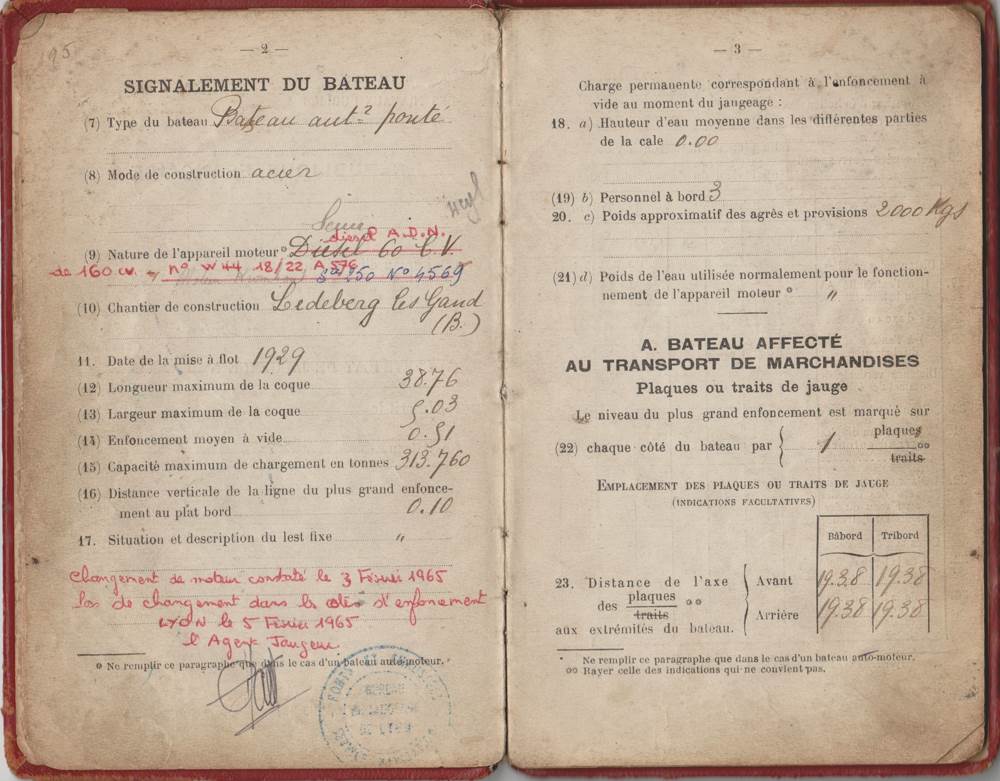 — 2 —
SIGNALEMENT DU BATEAU
(7) Type du bateau Bateau autº ponté
(8) Mode de construction acier
diesel A.D.N.
(9) Nature de l'appareil moteur° Diesel 60 C.V.
de 160 cv. nº W 44 18/22 A 576
750 Nº 4569
(10) Chantier de construction Ledeberg les Gand
(B.)
11. Date de la mise à flot 1929
(12) Longueur maximum de la coque 38.76
(13) Largeur maximum de la coque 5.03
(14) Enfoncement moyen à vide 0.51
(15) Capacité maximum de chargement en tonnes 313.760
(16) Distance verticale de la ligne du plus grand enfonce-
ment au plat bord 0.10
17. Situation et description du lest fixe "
Changement de moteur constaté le 3 Février 1965
Pas de changement dans les côtes d'enfoncement
LYON le 5 Février 1965
l'Agent Jaugeur
° Ne remplir ce paragraphe que dans le cas d'un bateau auto-moteur.
— 3 —
Charge permanente correspondant à l'enfoncement à
vide au moment du jaugeage :
18. a) Hauteur d'eau moyenne dans les différentes parties
de la cale 0.00
(19) b) Personnel à bord 3
20. c) Poids approximatif des agrès et provisions 2000 Kgs
(21) d) Poids de l'eau utilisée normalement pour le fonction-
nement de l'appareil moteur ° "
A. BATEAU AFFECTÉ
AU TRANSPORT DE MARCHANDISES
Plaques ou traits de jauge
Le niveau du plus grand enfoncement est marqué sur
(22) chaque côté du bateau par { 1 plaques °°
traits
EMPLACEMENT DES PLAQUES OU TRAITS DE JAUGE
(INDICATIONS FACULTATIVES)
Bâbord Tribord
23. Distance de l'axe Avant 19.38 19.38
des plaques °°
traits
Arrière 19.38 19.38
aux extrémités du bateau.
° Ne remplir ce paragraphe que dans le cas d'un bateau auto-moteur.
°° Rayer celle des indications qui ne convient pas.